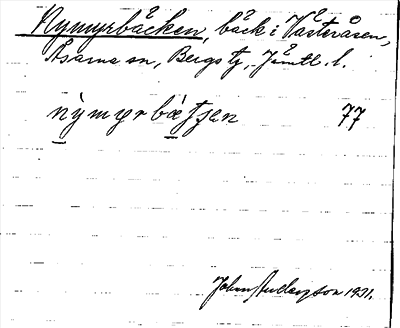 Nymyrbäcken, bäck i Västeråsen,
Åsarne sn, Bergs tg, Jämtl. l.
nymyrbætjen 77
John Anderson 1931.